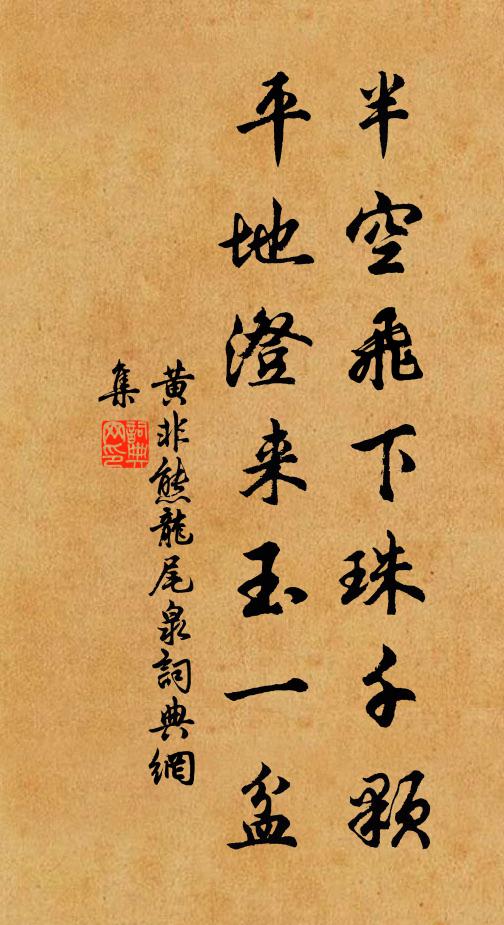 半空飛下珠千顆
平地澄来玉一盆
黄非熊龍尾泉詞典網
集
詞典網印